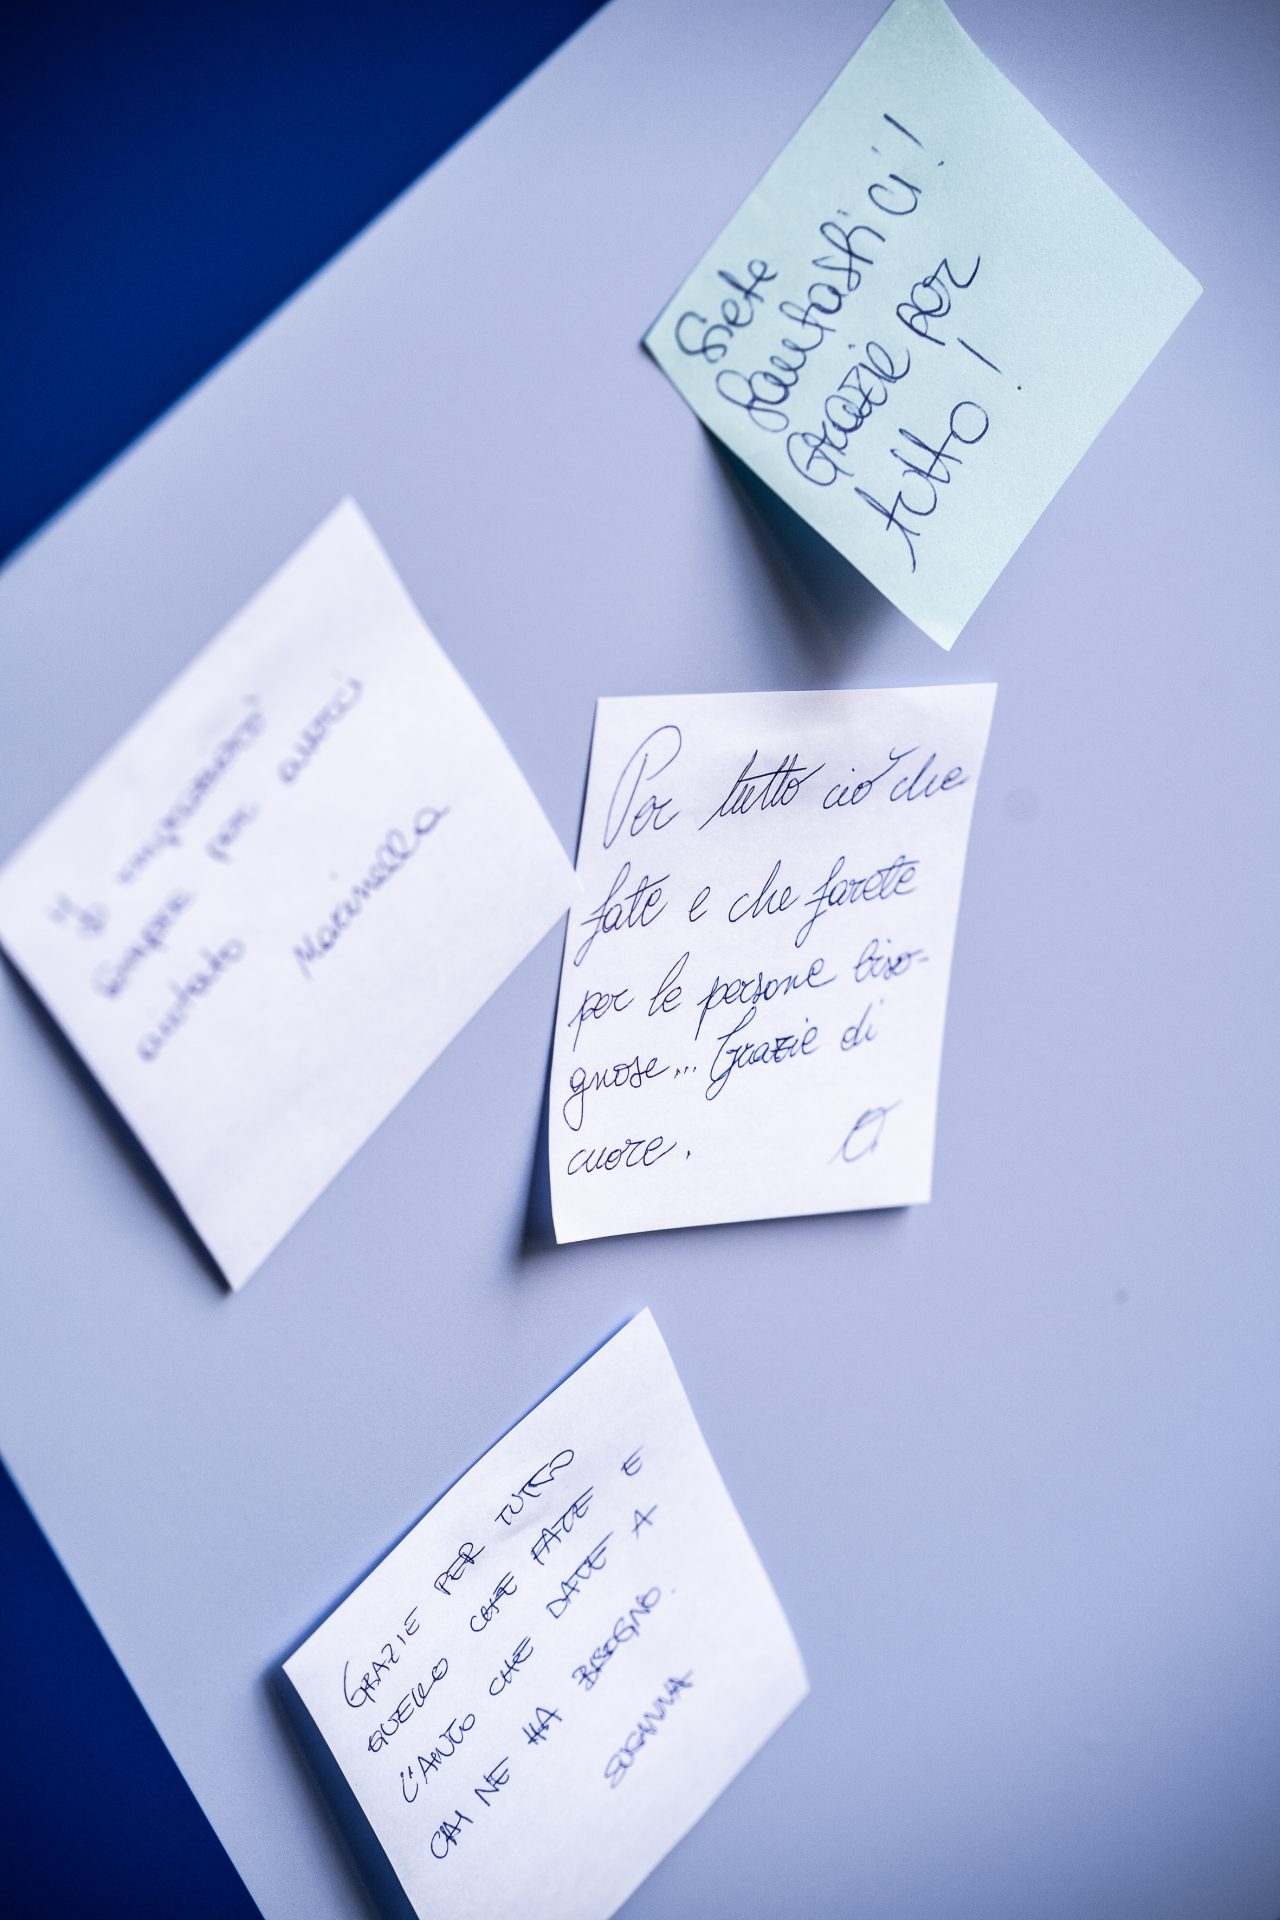 Siete
fantastici!
Grazie per
tutto!
Vi ringrazierò
sempre per averci
aiutato
Marinella
Per tutto ciò che
fate e che farete
per le persone biso-
gnose... Grazie di
cuore.
GRAZIE PER TUTTO
QUELLO CHE FATE E
L'AIUTO CHE DATE A
CHI NE HA BISOGNO.